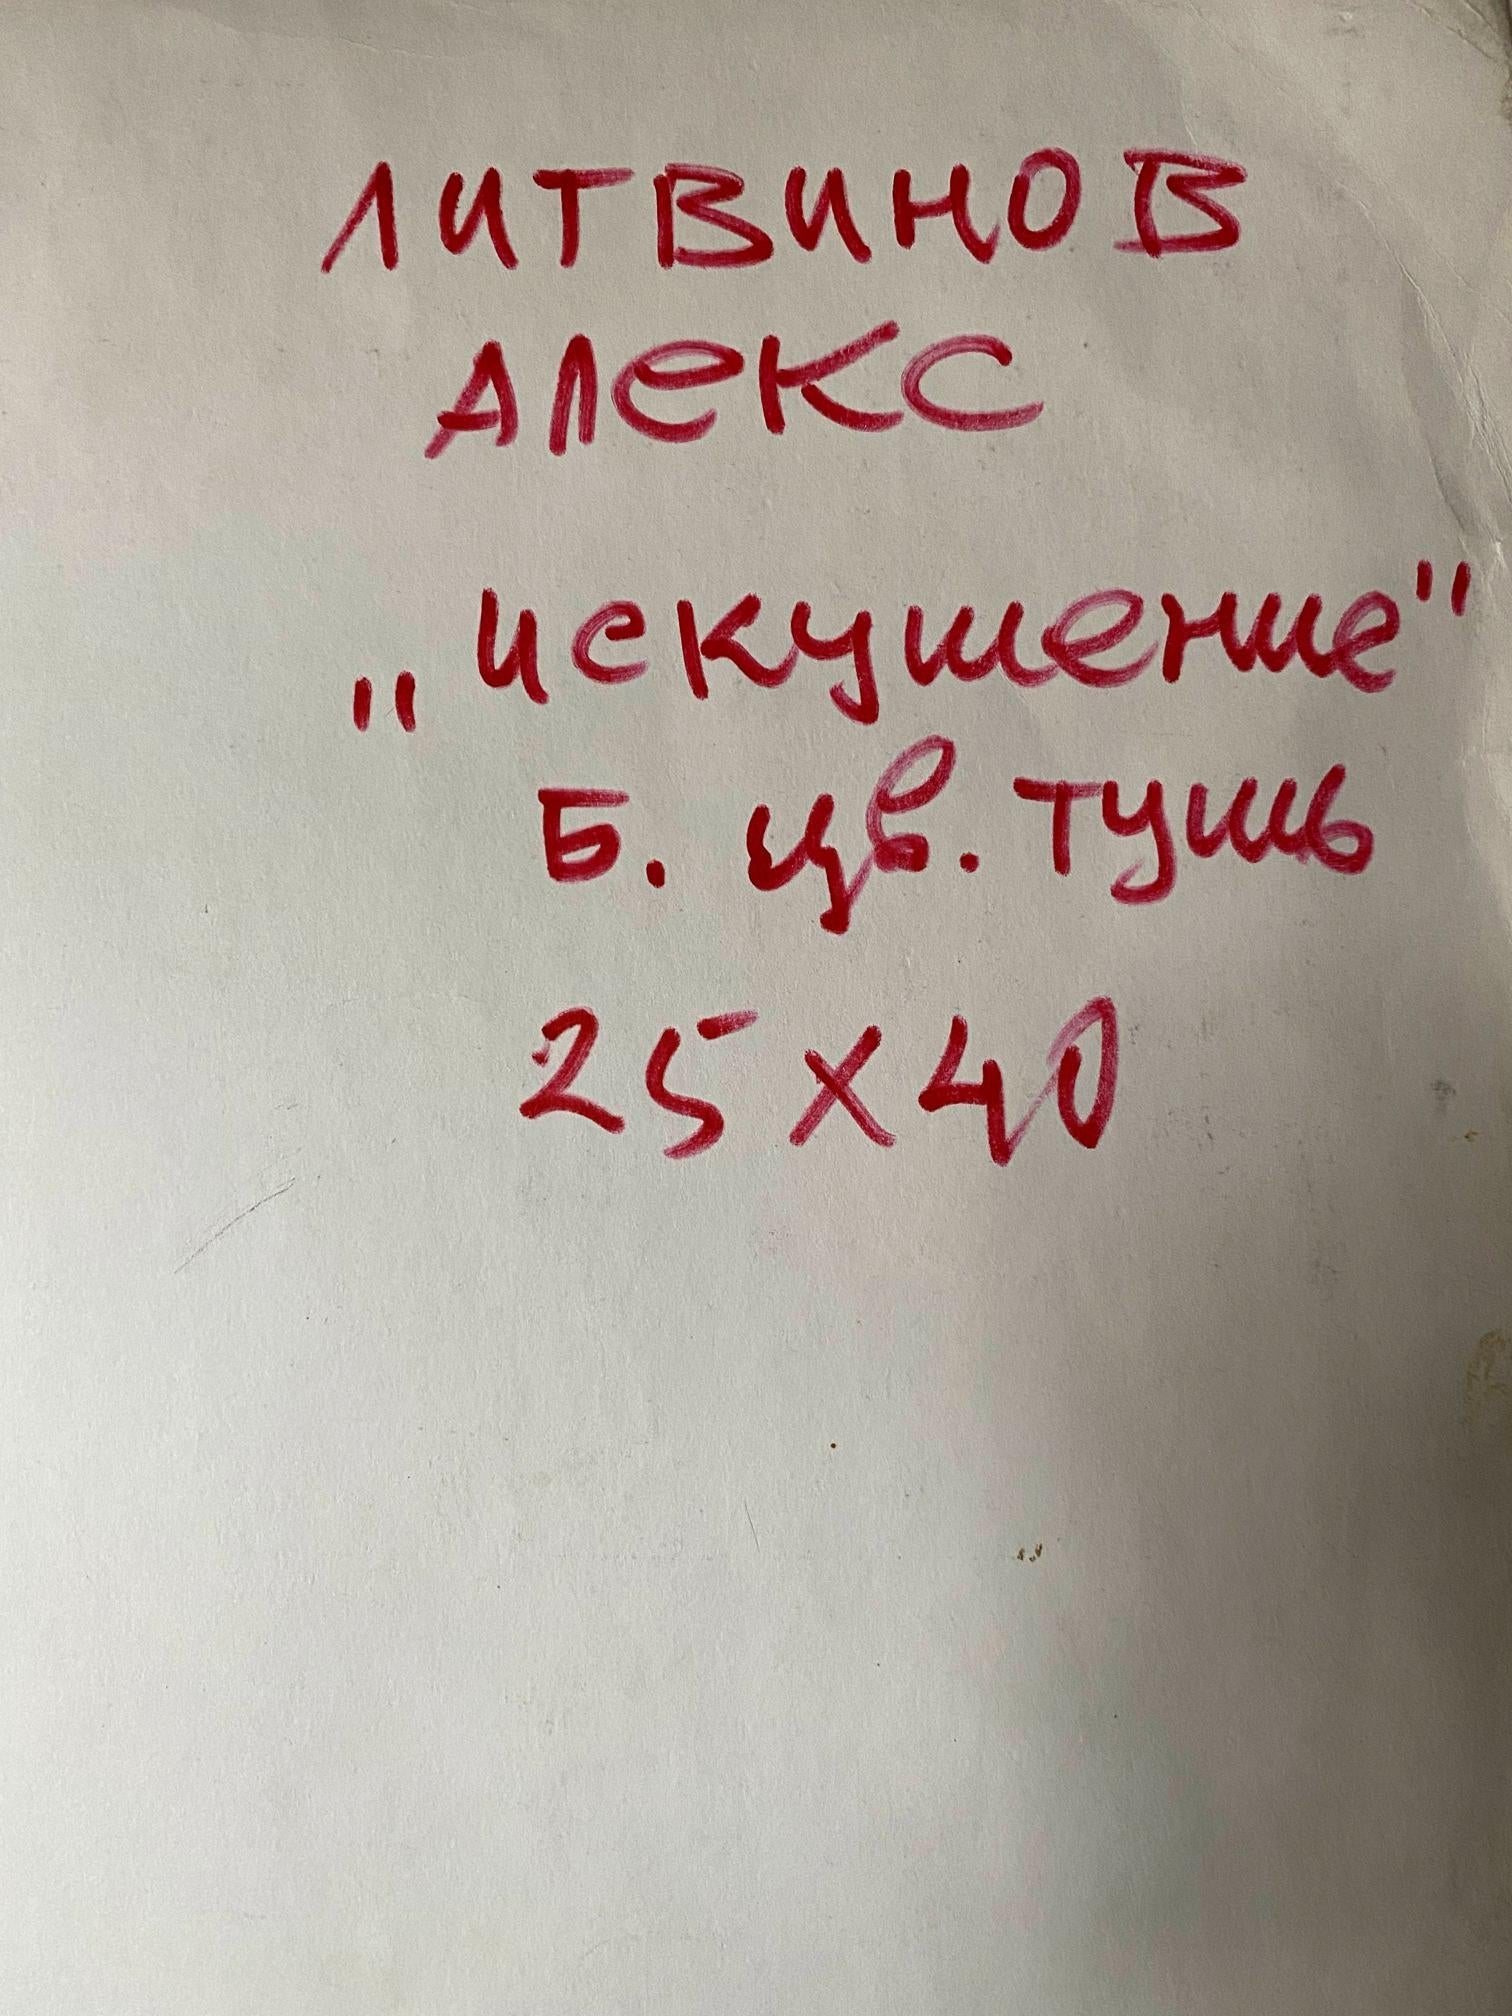 ЛИТВИНОВ
АЛЕКС
„Искушение"
Б. цв. тушь
25 х 40